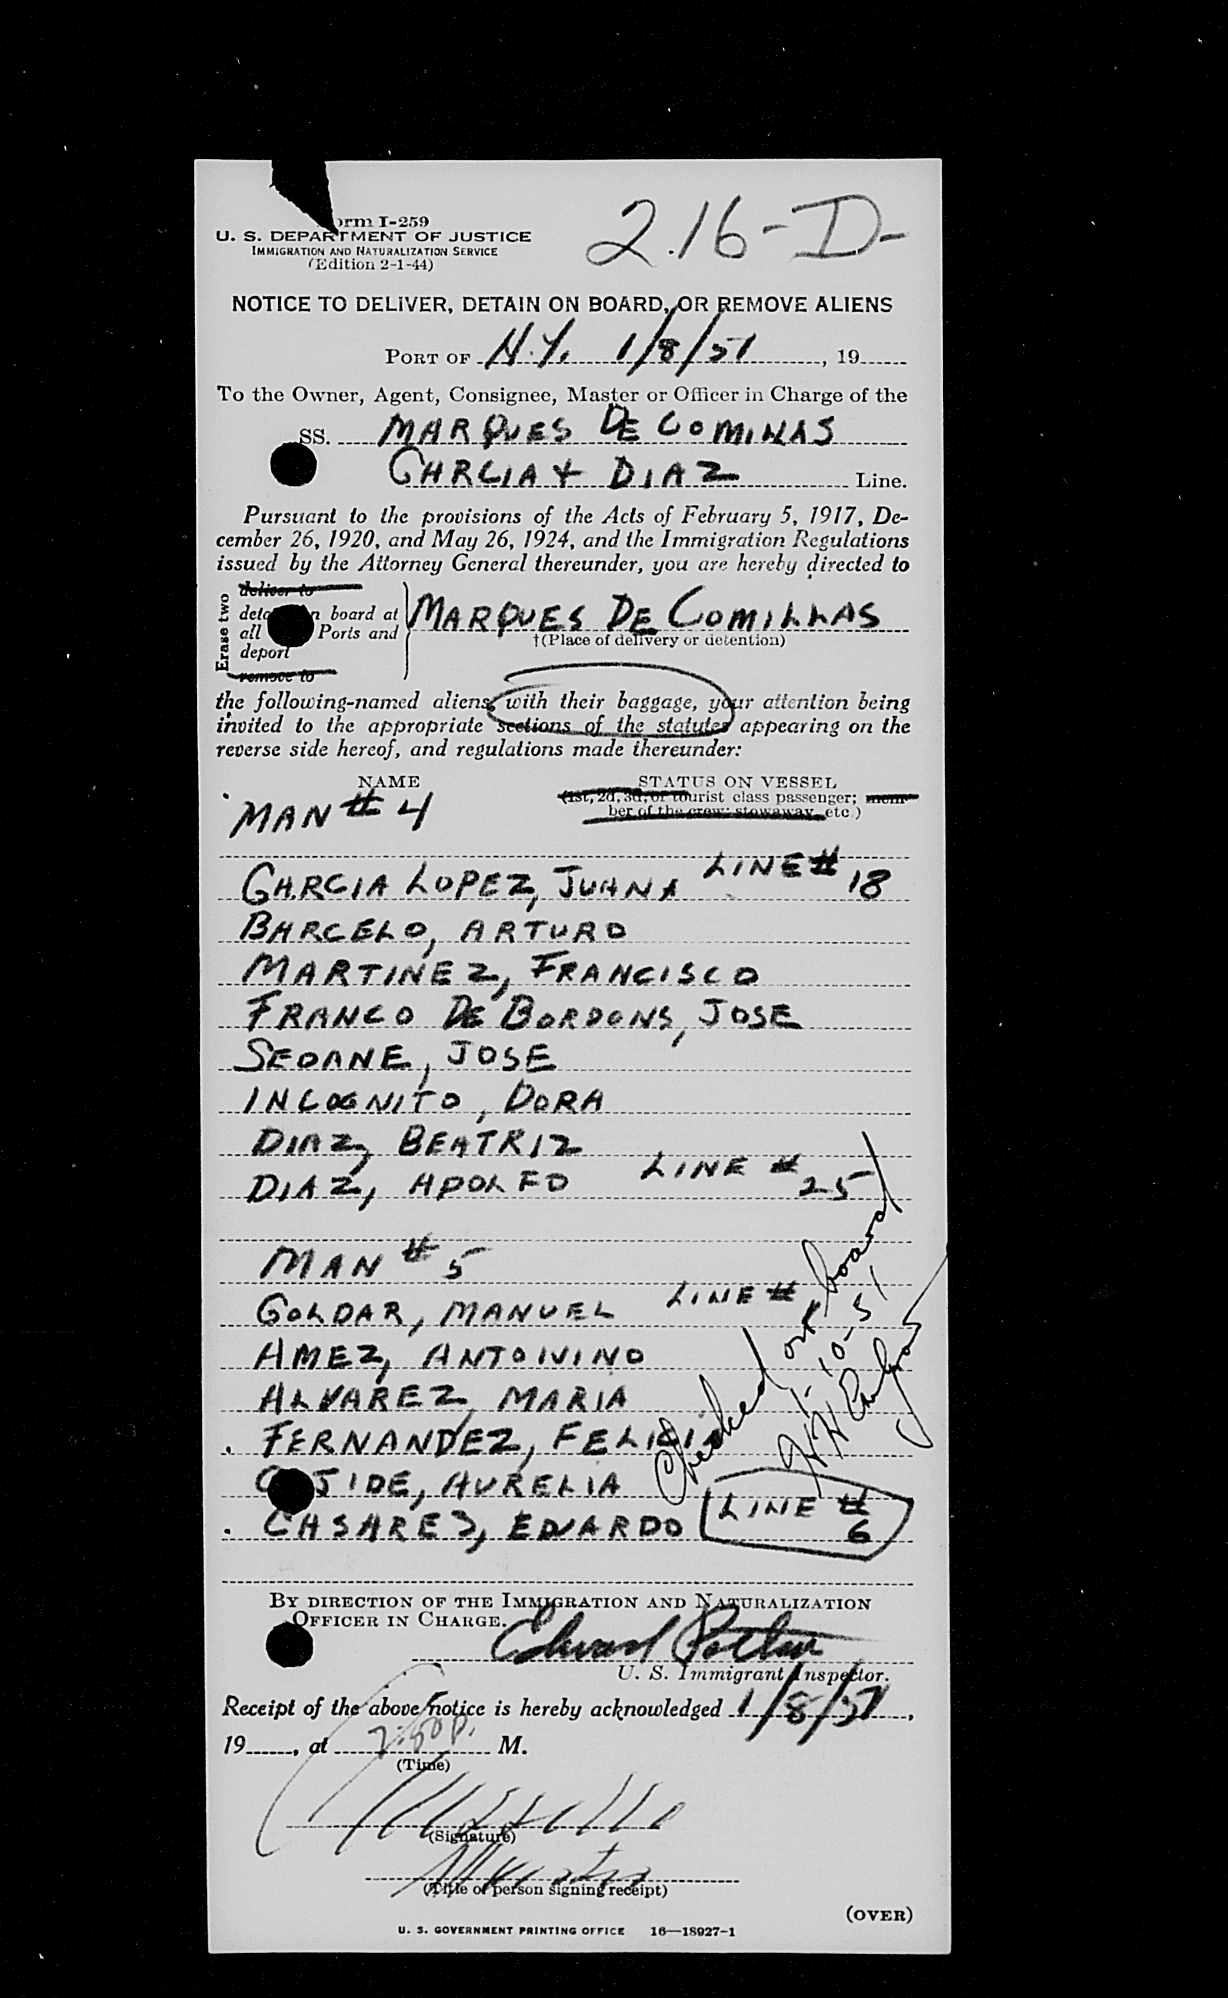 orm I-259
2.16-D-
U. S. DEPARTMENT OF JUSTICE
IMMIGRATION AND NATURALIZATION SERVICE
(Edition 2-1-44)
NOTICE TO DELIVER, DETAIN ON BOARD, OR REMOVE ALIENS
PORT OF N.Y. 1/8/51, 19
To the Owner, Agent, Consignee, Master or Officer in Charge of the
SS. MARQUES DE COMILLAS
GARCIA + DIAZ Line.
Pursuant to the provisions of the Acts of February 5, 1917, De-
cember 26, 1920, and May 26, 1924, and the Immigration Regulations
issued by the Attorney General thereunder, you are hereby directed to
Erase two
deliver to
deta n board at MARQUES DE COMILLAS
all Ports and †(Place of delivery or detention)
deport
remove to
the following-named aliens, with their baggage, your attention being
invited to the appropriate sections of the statutes appearing on the
reverse side hereof, and regulations made thereunder:
NAME STATUS ON VESSEL
(1st, 2d, 3d, or tourist class passenger; mem-
ber of the crew; stowaway, etc.)
MAN # 4
GARCIA LOPEZ, JUANA LINE # 18
BARCELO, ARTURO
MARTINEZ, FRANCISCO
FRANCO DE BORDONS, JOSE
SEOANE, JOSE
INCOGNITO, DORA
DIAZ, BEATRIZ
DIAZ, ADOLFO LINE # 25
MAN # 5
GOLDAR, MANUEL LINE # 1
AMEZ, ANTONINO
ALVAREZ, MARIA
FERNANDEZ, FELICIA
JIDE, AURELIA
CASARES, EDUARDO LINE # 6
Checked on board
1-10-51
BY DIRECTION OF THE IMMIGRATION AND NATURALIZATION
OFFICER IN CHARGE.
Edward
U. S. Immigrant Inspector.
Receipt of the above notice is hereby acknowledged 1/8/51,
19, at 2:50 p. M.
(Time)
(Signature)
(Title of person signing receipt)
(OVER)
U. S. GOVERNMENT PRINTING OFFICE 16—18927-1